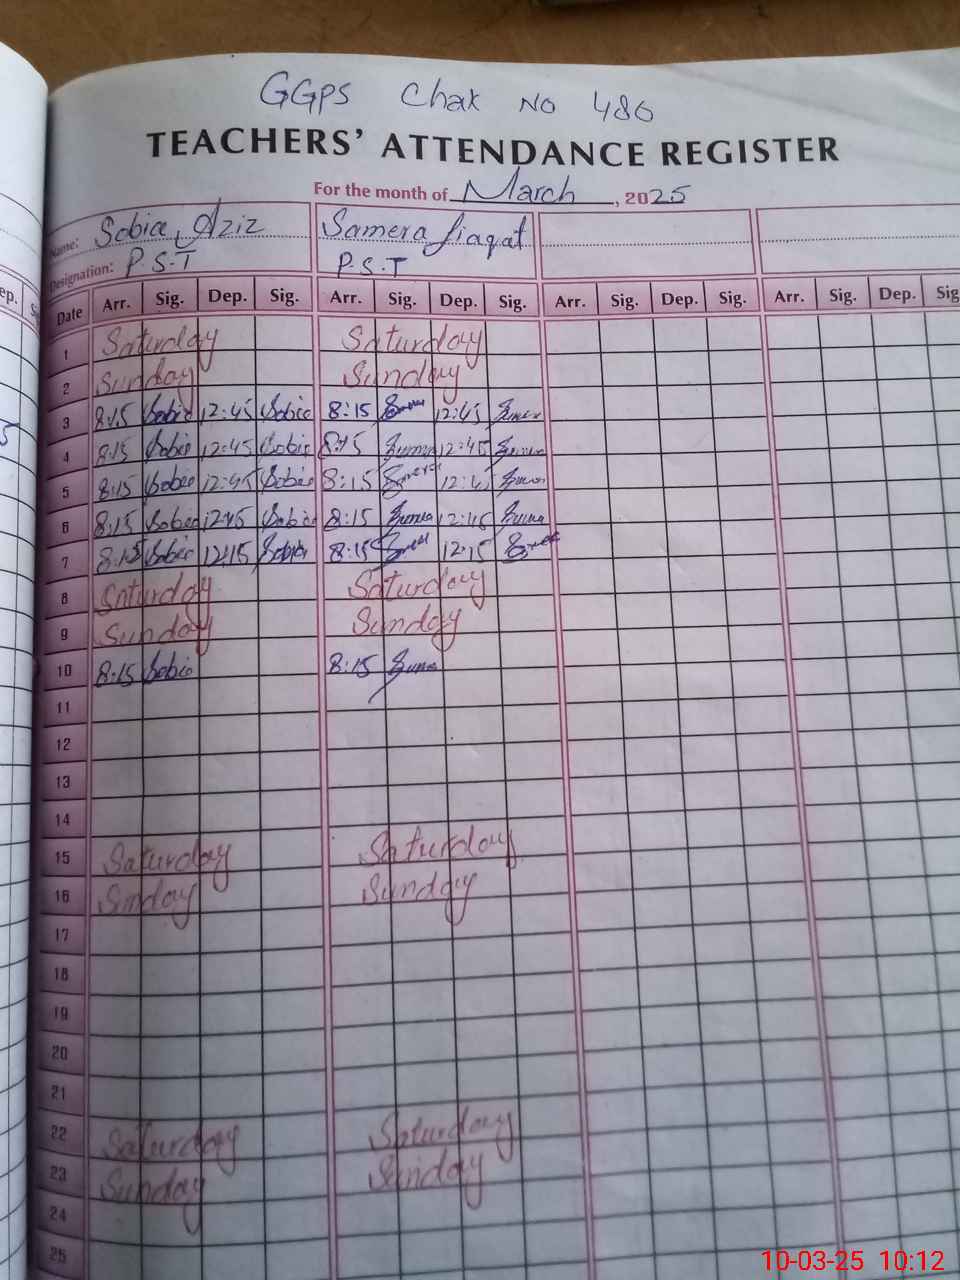 GGPS Chak No 486
TEACHERS' ATTENDANCE REGISTER
For the month of March, 2025
Name: Sobia Aziz Samera liaqat
Designation: P.S.T P.S.T
ep. Date Arr. Sig. Dep. Sig. Arr. Sig. Dep. Sig. Arr. Sig. Dep. Sig. Arr. Sig. Dep. Sig
1 Saturday Saturday
2 Sunday Sunday
3 8:15 Sobia 12:45 Sobia 8:15 12:45
4 8:15 Sobia 12:45 Sobia 8:15 12:45
5 8:15 Sobia 12:45 Sobia 8:15 12:45
6 8:15 Sobia 12:45 Sobia 8:15 12:45
7 8:15 Sobia 12:15 Sobia 8:15 12:15
8 Saturday Saturday
9 Sunday Sunday
10 8:15 Sobia 8:15
11
12
13
14
15 Saturday Saturday
16 Sunday Sunday
17
18
19
20
21
22 Saturday Saturday
23 Sunday Sunday
24
25
10-03-25 10:12